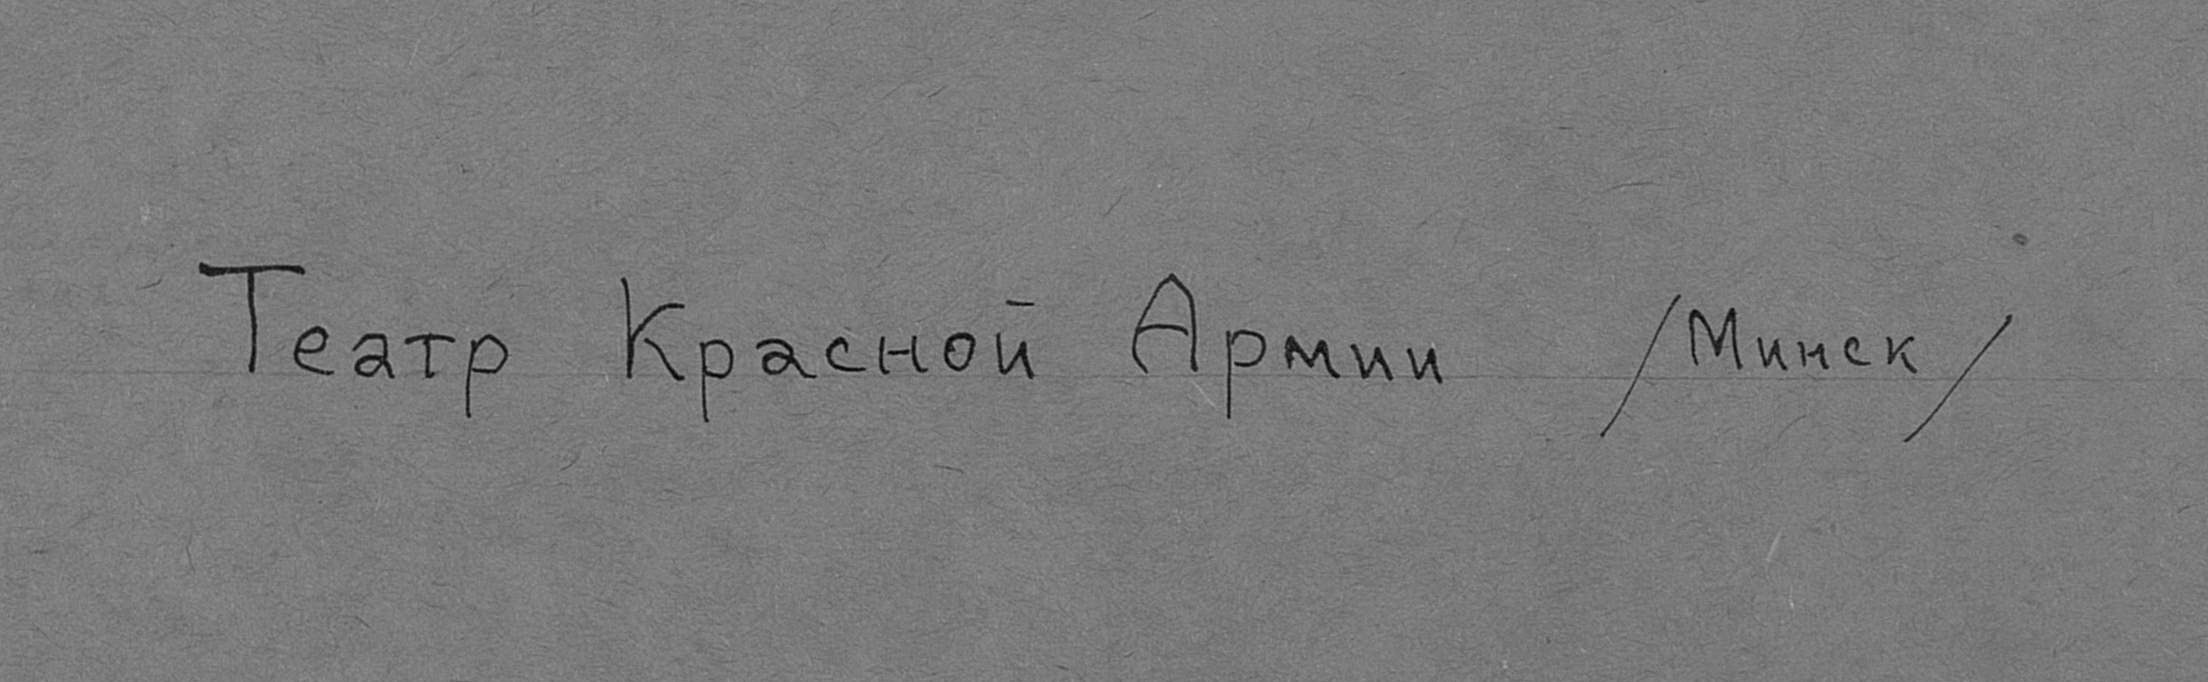 Театр Красной Армии /Минск/